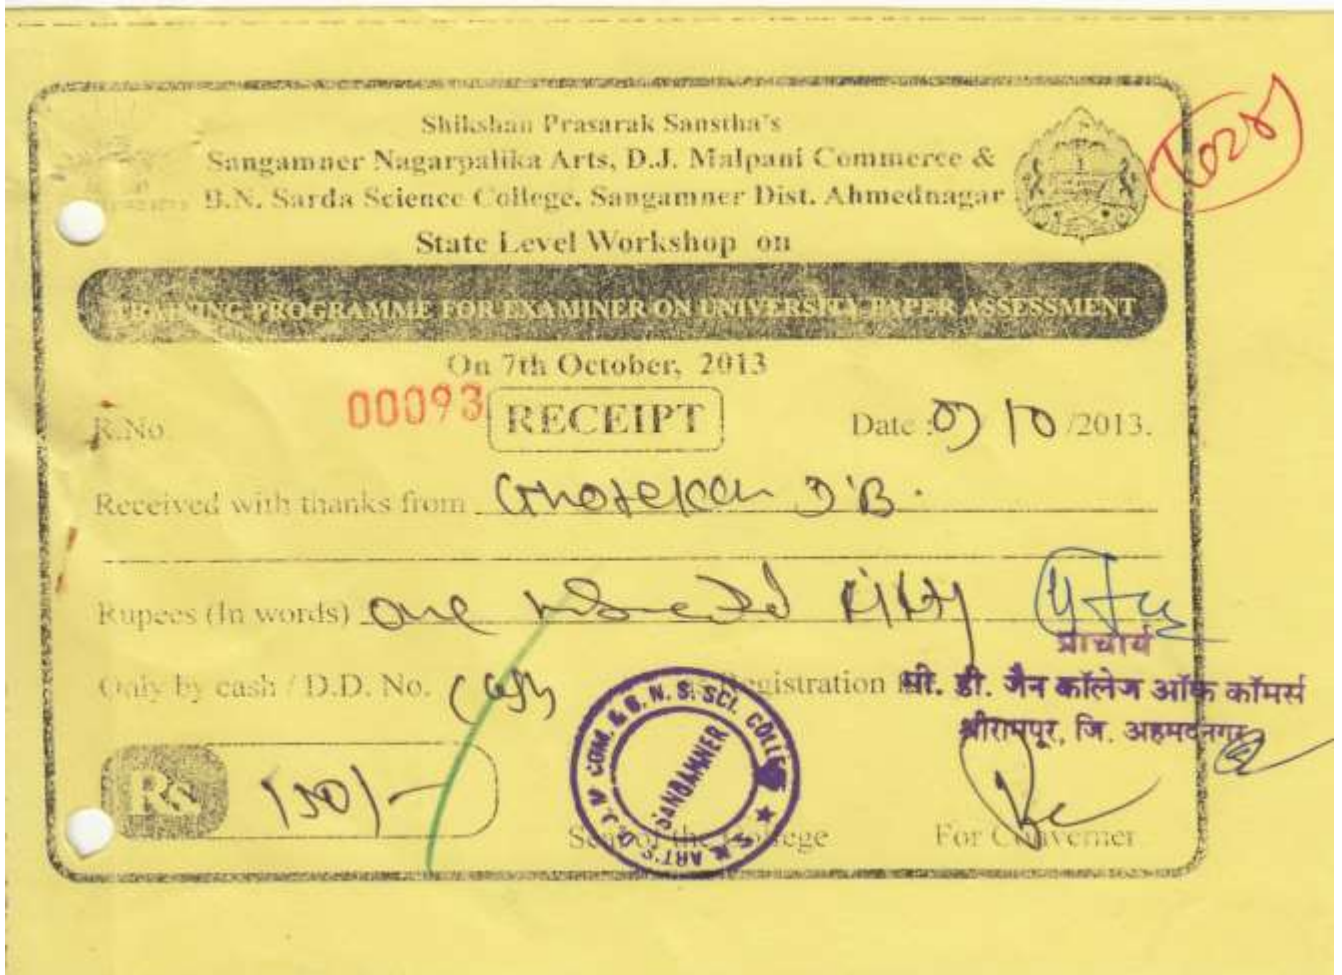 Shikshan Prasarak Sanstha's
Sangamner Nagarpalika Arts, D.J. Malpani Commerce &
B.N. Sarda Science College, Sangamner Dist. Ahmednagar
State Level Workshop on
TRAINING PROGRAMME FOR EXAMINER ON UNIVERSITY PAPER ASSESSMENT
On 7th October, 2013
R.No. 00093 RECEIPT Date : 07/10/2013.
Received with thanks from Ghotekar D.B.
Rupees (In words) One hundred fifty
प्राचार्य
Only by cash / D.D. No. Cash Registration
सी. डी. जैन कॉलेज ऑफ कॉमर्स
श्रीरामपूर, जि. अहमदनगर
Rs 150/-
COM. & B. N. S. SCI. COLLEGE
SANGAMNER
S.N. ART'S, D.J.M
Seal of the College For Convener